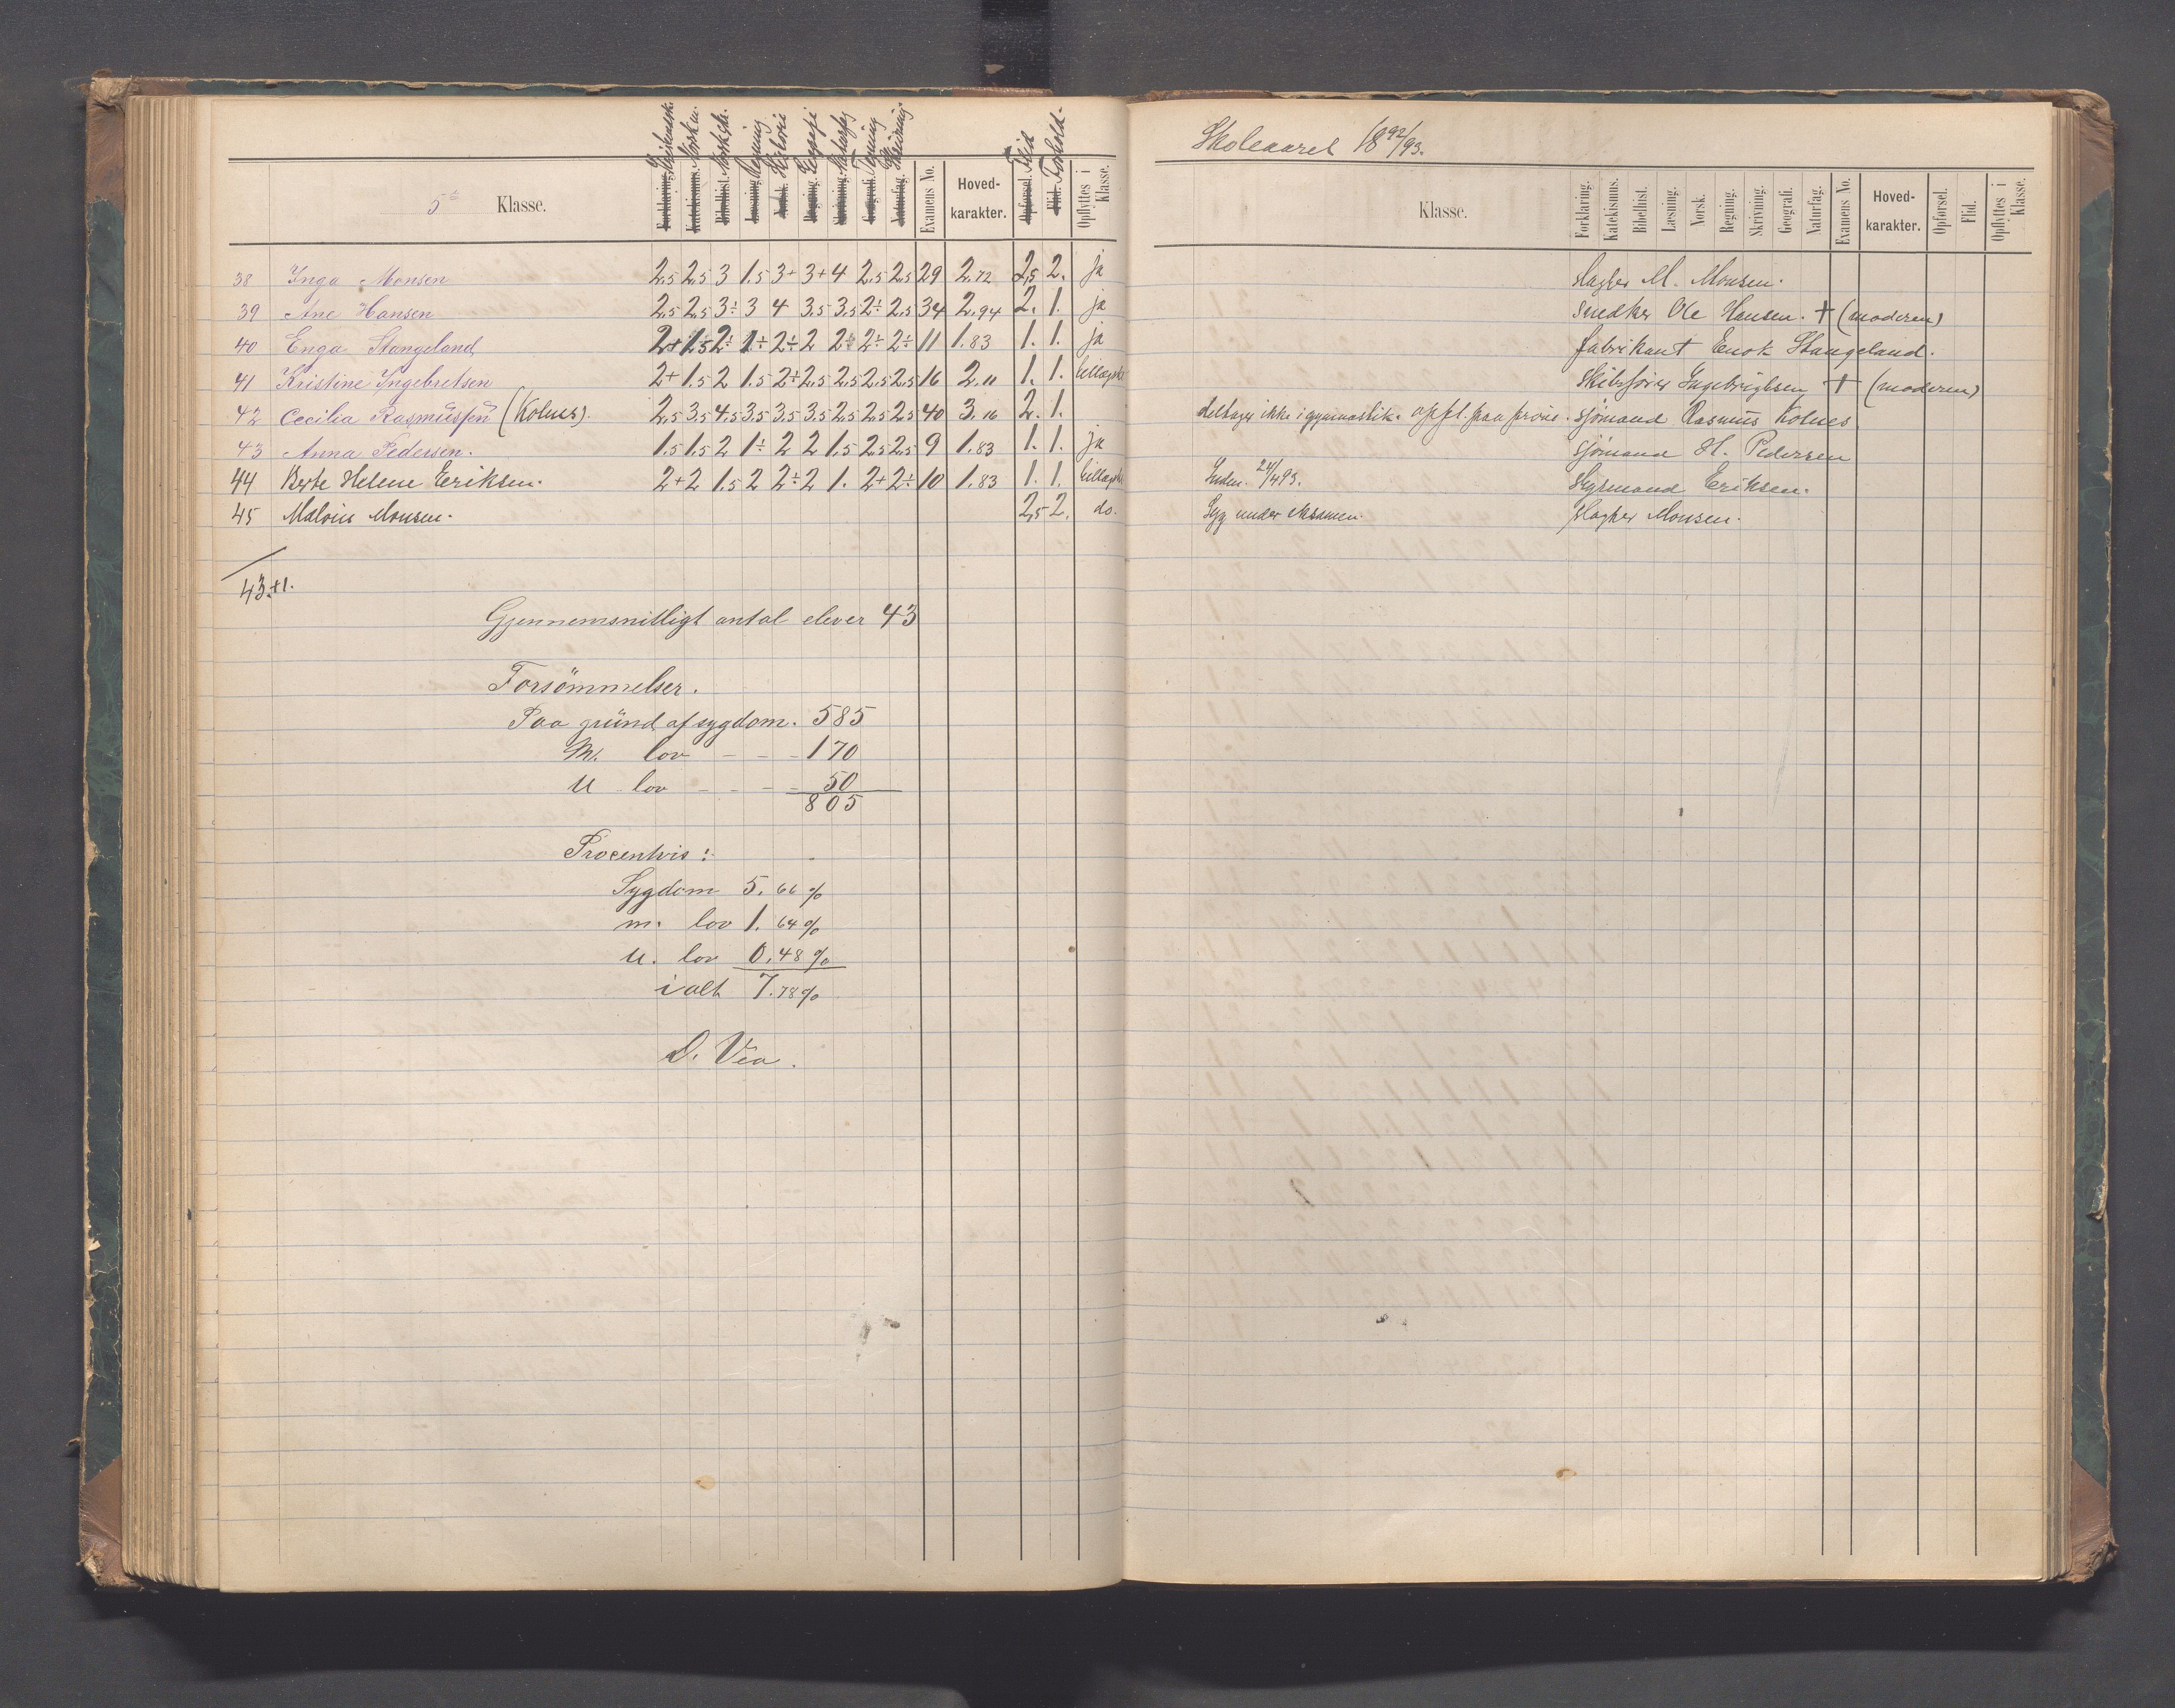 5te Klasse.
Forklaring. Katekismus. Bibelhist. Læsning. Norsk. Regning. Skrivning. Geografi. Naturfag. Examens No. Hoved-karakter. Opførsel. Flid. Opflyttes i Klasse.
Norsk m. Norsk skr. Regning Historie Geografi Naturfag Tegning Skrivning. Flid Forhold.
38 Inga Monsen 2,5 2,5 3 1.5 3+ 3+ 4 2,5 2,5 29 2.72 2,5 2. ja
39 Ane Hansen 2,5 2,5 3÷ 3 4 3,5 3,5 2÷ 2,5 34 2.94 2. 1. ja
40 Enga Stangeland 2+ 1.5 2÷ 1÷ 2÷ 2 2÷ 2÷ 2÷ 11 1.83 1. 1. ja
41 Kristine Ingebretsen 2+ 1.5 2 1.5 2÷ 2,5 2,5 2,5 2,5 16 2.11 1. 1.
42 Cecilia Rasmussen (Kolnes). 2,5 3,5 4,5 3,5 3,5 3,5 2,5 2,5 2,5 40 3.16 2. 1.
43 Anna Pedersen. 1.5 1.5 2 1÷ 2 2 1.5 2,5 2,5 9 1.83 1. 1. ja
44 Berte Helene Eriksen. 2+ 2 1.5 2 2÷ 2 1. 2+ 2÷ 10 1.83 1. 1.
45 Malvine Monsen. 2,5 2. do.
43+1.
Gjennemsnitligt antal elever 43
Forsömmelser.
Paa grund af sygdom. 585
M. lov - - - 170
U lov - - - - 50
805
Procentvis:
Sygdom 5.66 %
m. lov 1.64 %
u. lov 0.48 %
ialt 7.78 %
D. Vea.
Skoleaaret 1892/93.
Klasse.
Forklaring. Katekismus. Bibelhist. Læsning. Norsk. Regning. Skrivning. Geografi. Naturfag. Examens No. Hoved-karakter. Opførsel. Flid. Opflyttes i Klasse.
slagter M. Monsen.
snedker Ole Hansen. + (moderen)
fabrikant Enok Stangeland.
Skibsfører Ingebrigtsen + (moderen)
deltager ikke i gymnastik. opfl. paa prøve. sjömand Rasmus Kolnes
sjömand H. Pedersen
Indm. 24/4 93. Styrmand Eriksen.
Syg under eksamen. slagter Monsen.